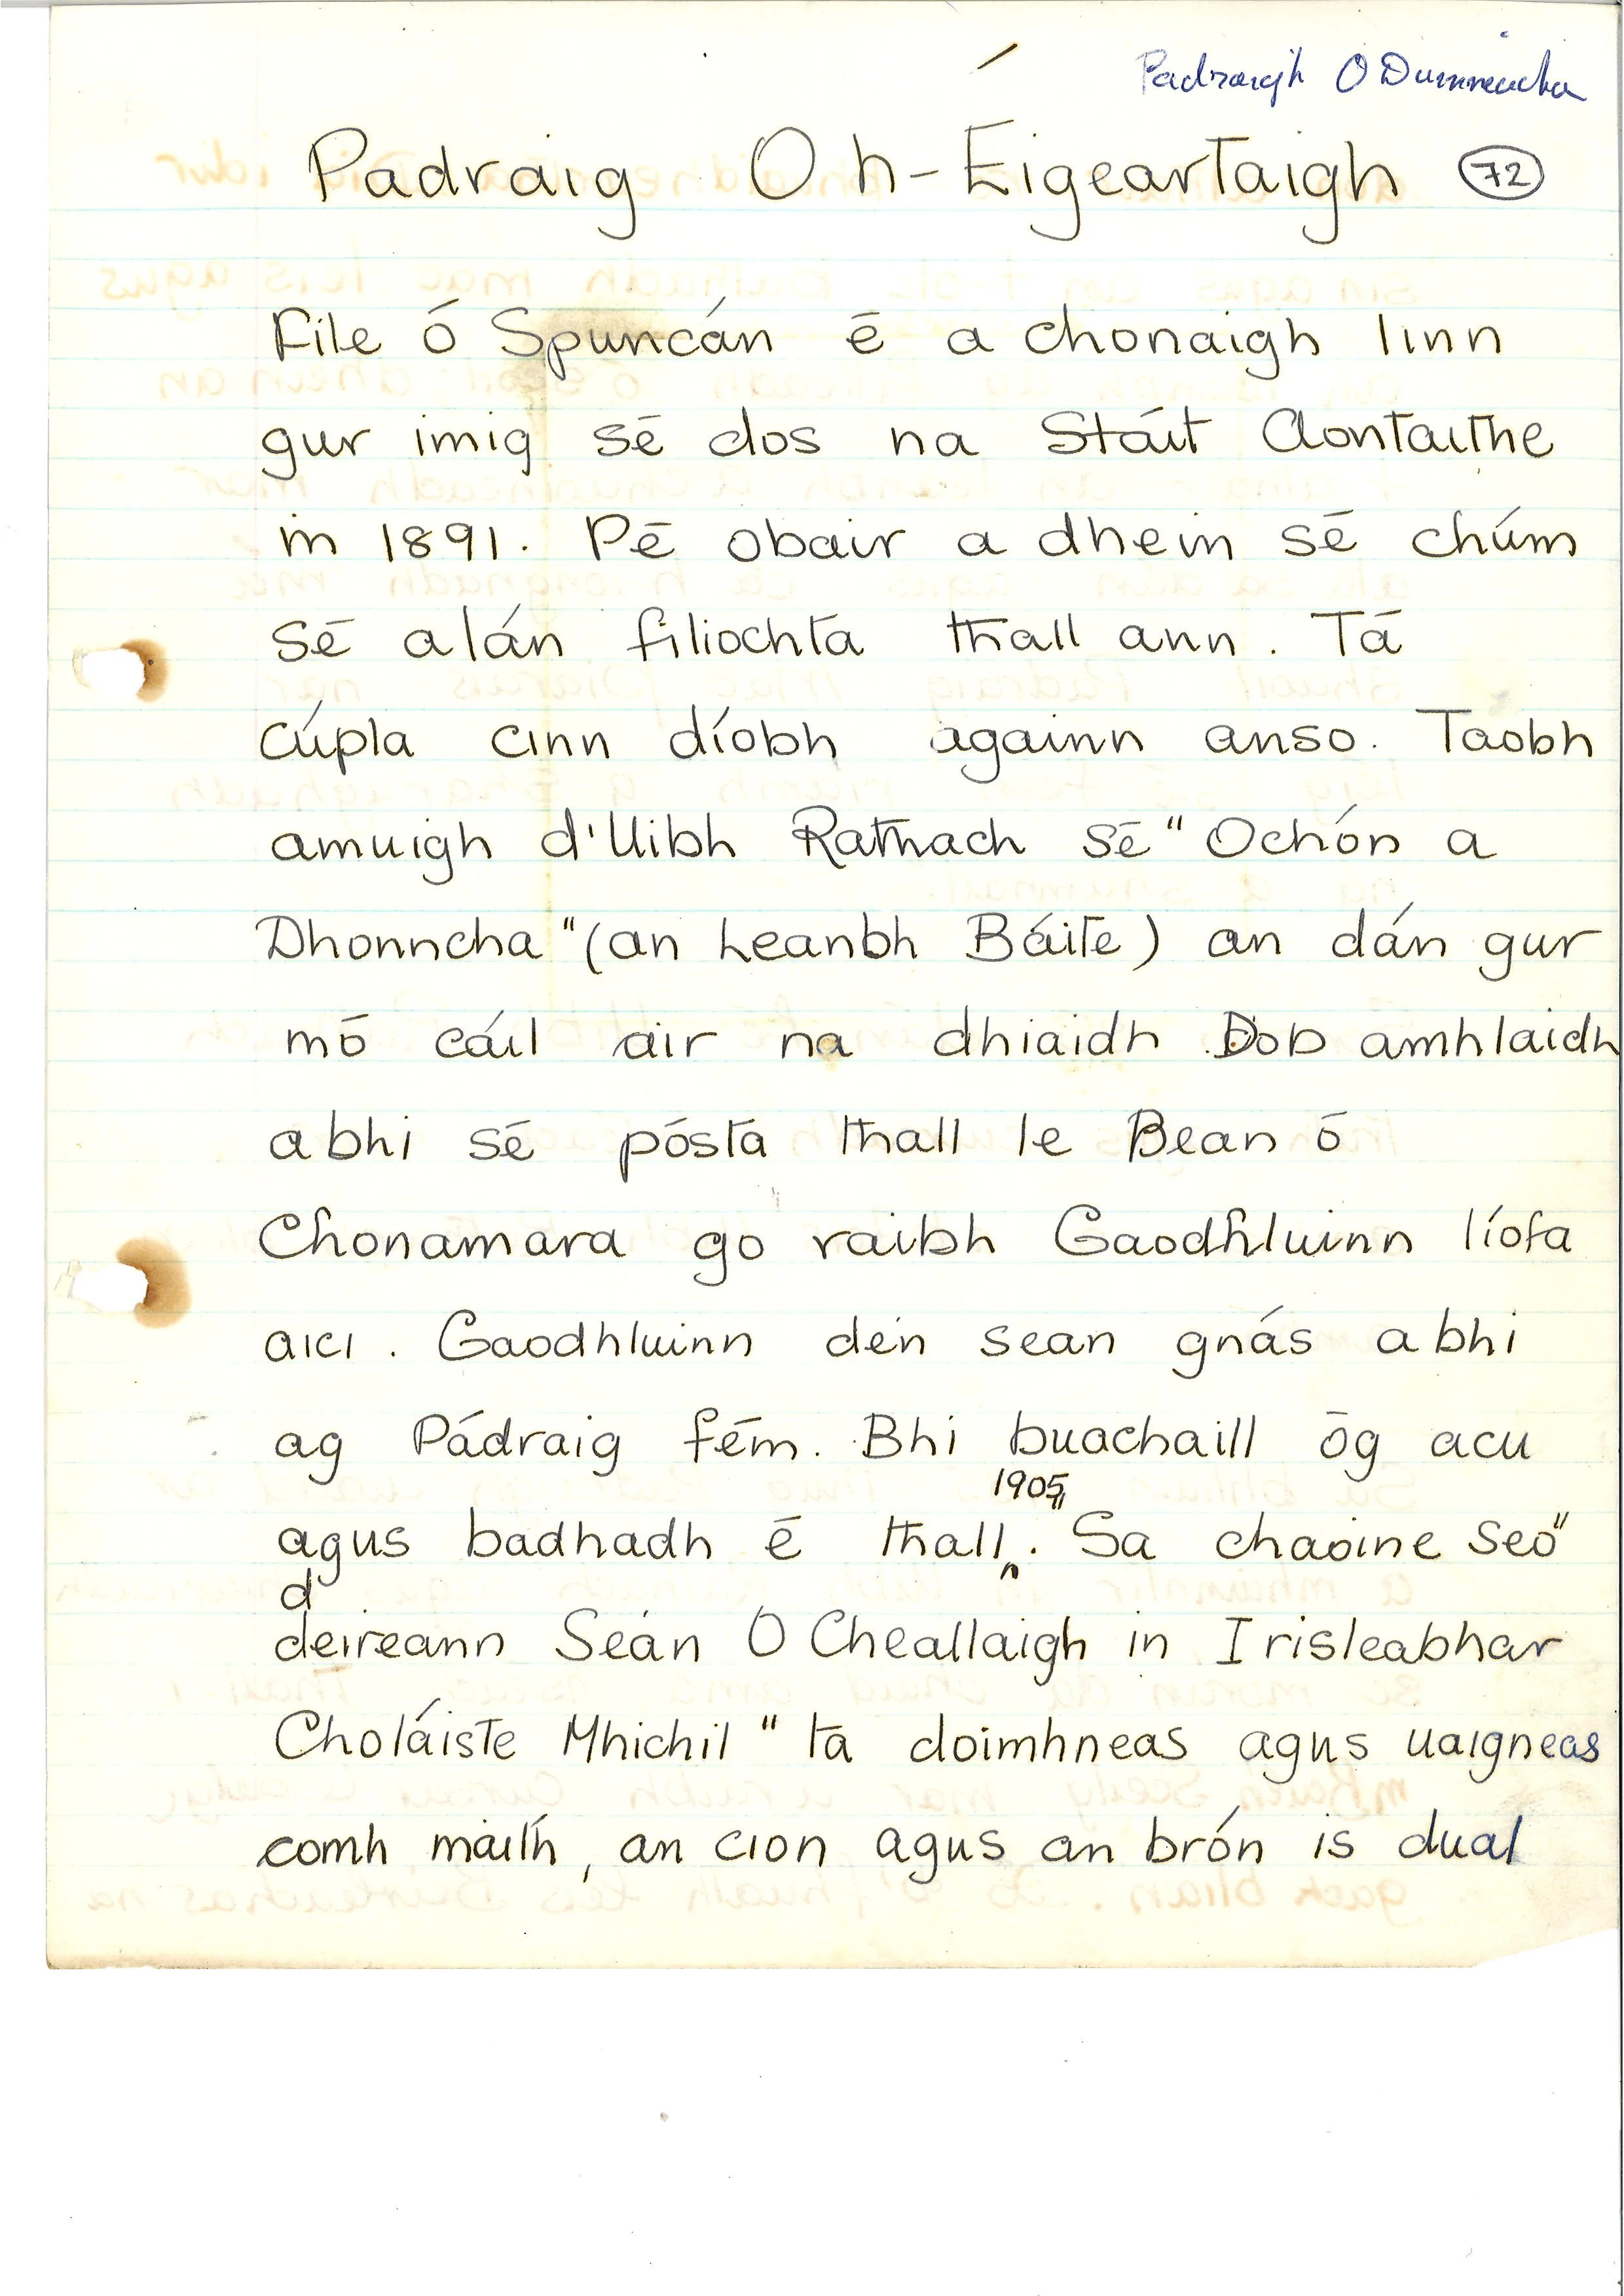 Padraigh O Duinneacha
Padraig O h-Éigeartaigh 72
File ó Spuncán é a chonaigh linn
gur imig sé dos na Stáit Aontaithe
in 1891. Pé obair a dhein sé chúm
sé alán filiochta thall ann. Tá
cúpla cinn díobh againn anso. Taobh
amuigh d'Uibh Rathach sé "Ochón a
Dhonncha" (an Leanbh Báite) an dán gur
mó cáil air na dhiaidh. Dob amhlaidh
abhi sé pósta thall le Bean ó
Chonamara go raibh Gaodhluinn líofa
aici. Gaodhluinn den sean gnás abhi
ag Pádraig féin. Bhi buachaill óg acu
1905
agus badhadh é thall. "Sa chaoine seo"
d
deireann Seán O Cheallaigh in Irisleabhar
Choláiste Mhichil "ta doimhneas agus uaigneas
comh maith, an cion agus an brón is dual